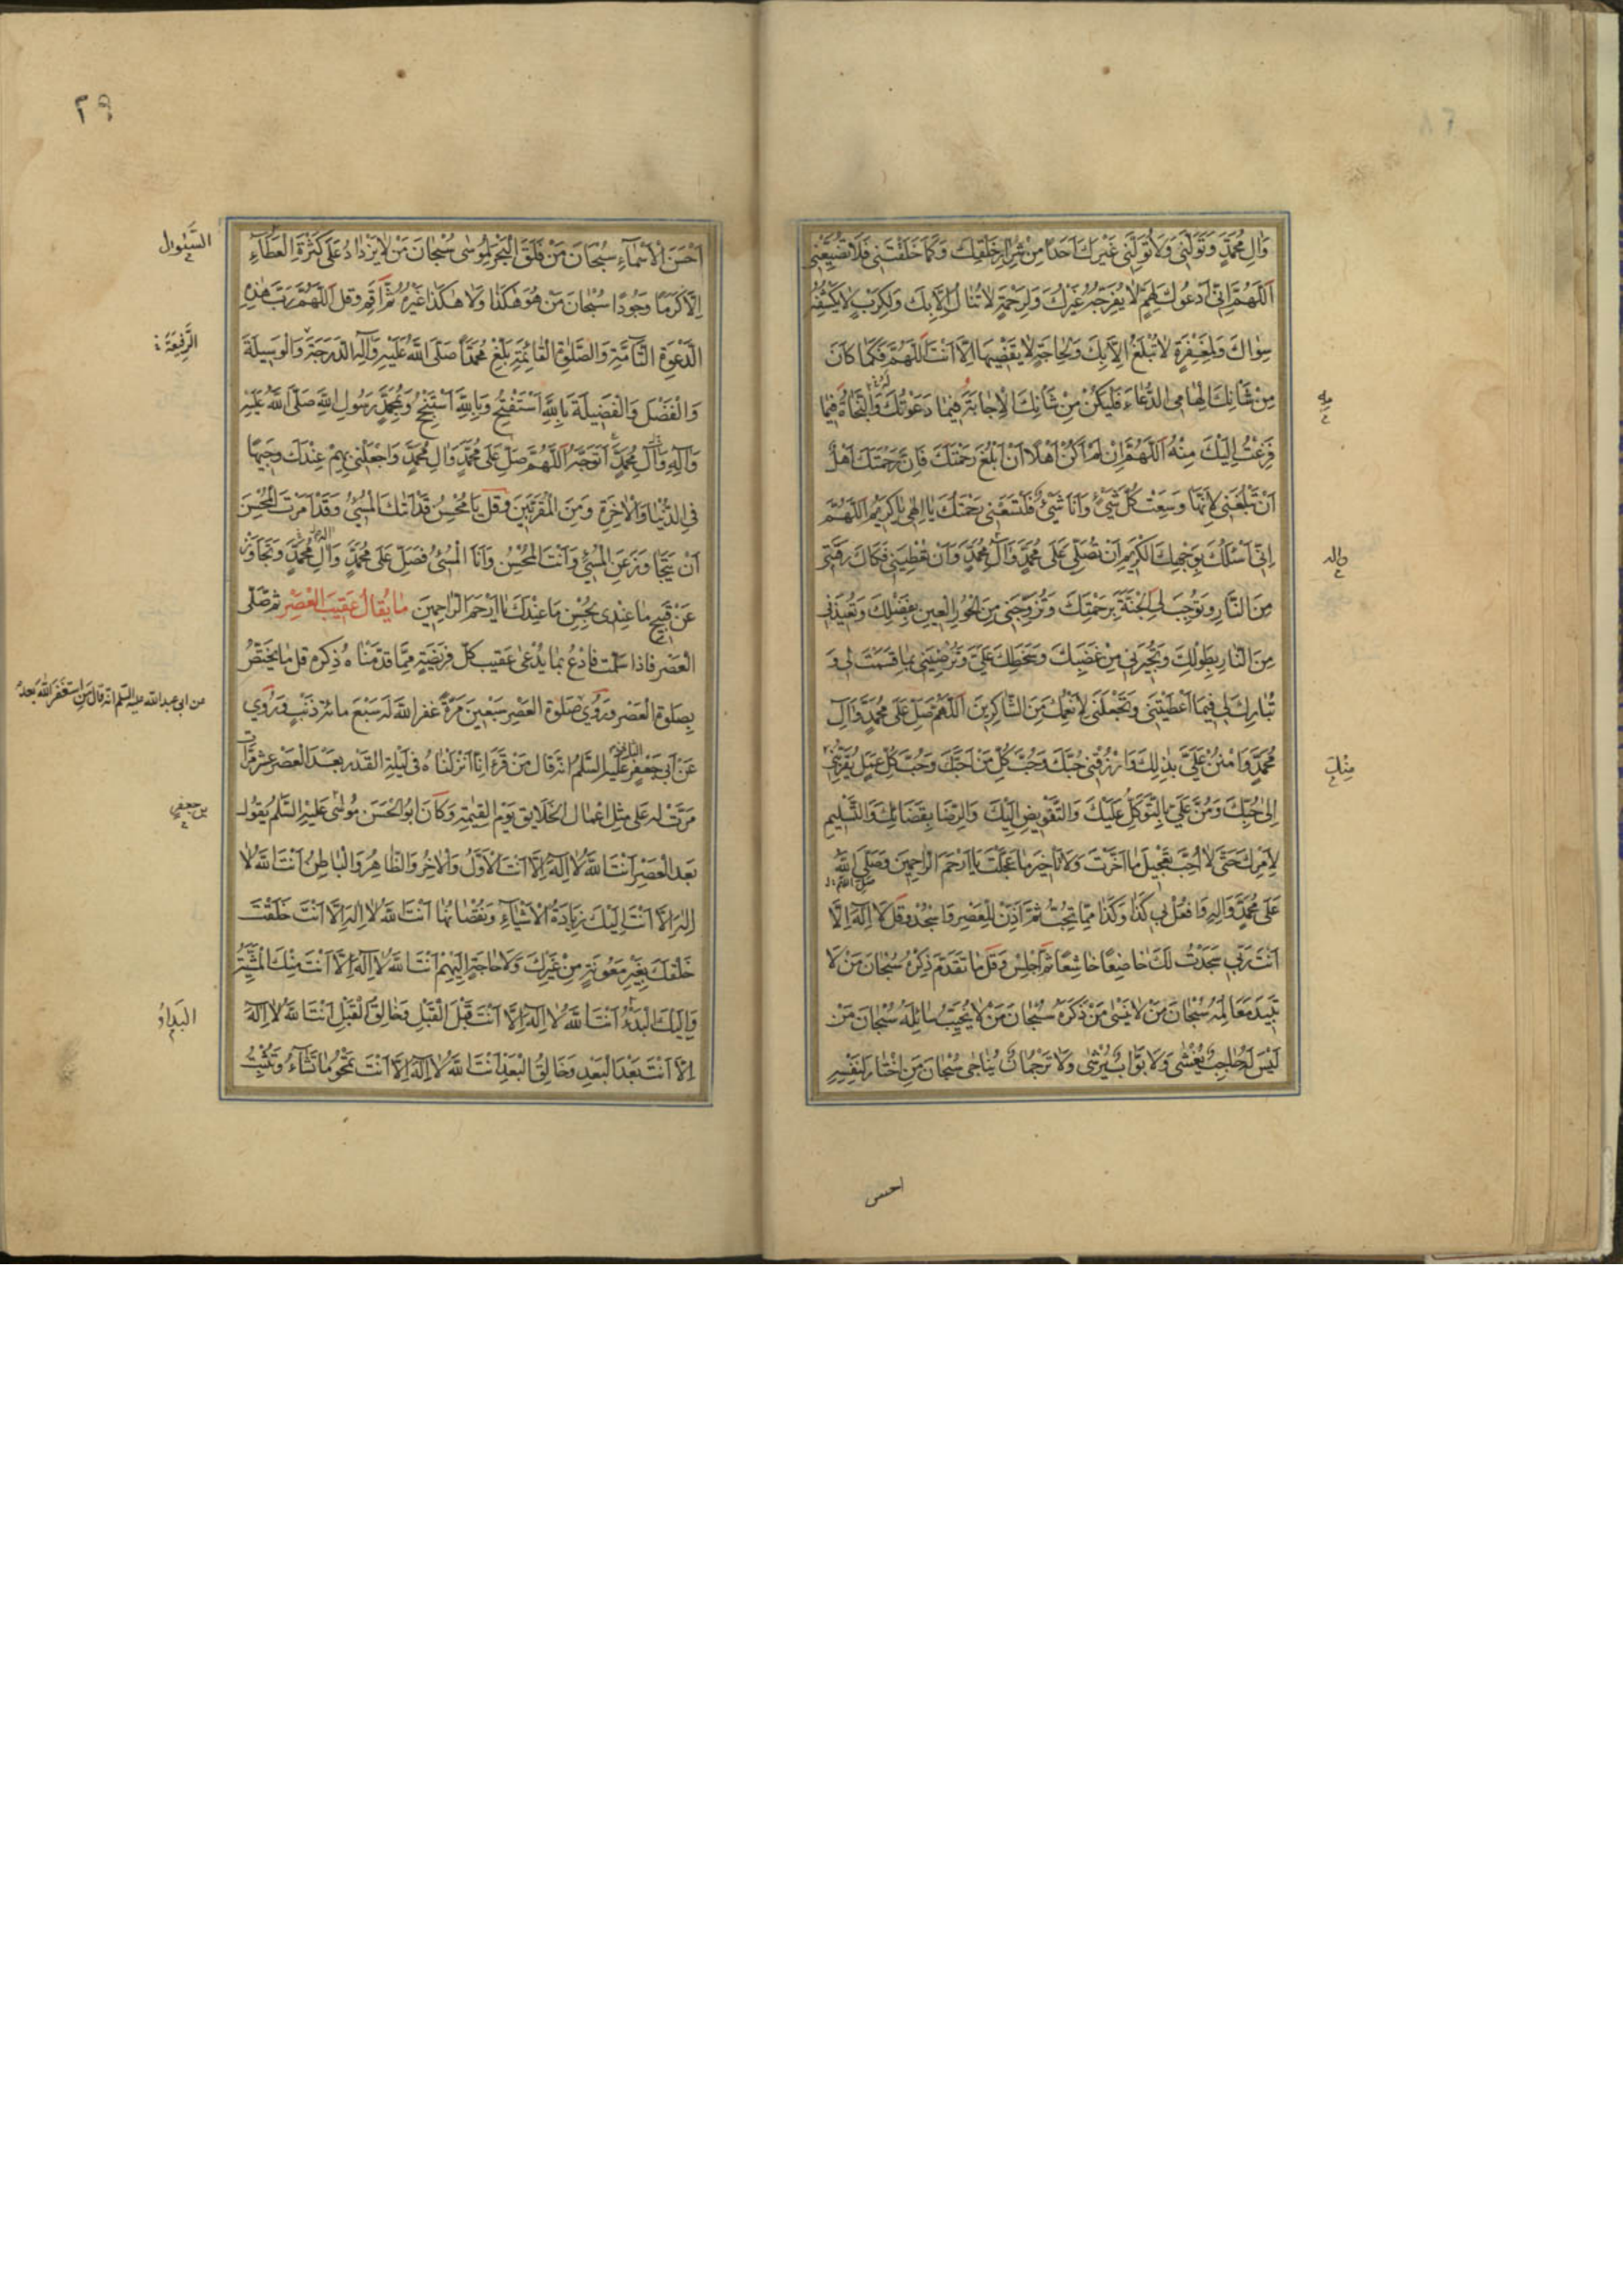 وَآلِ مُحَمَّدٍ وَتَوَلَّنِي وَلَا تُوَلِّنِي غَيْرَكَ اَحَدًا مِنْ شِرَارِ خَلْقِكَ وَكَمَا خَلَقْتَنِي فَلَا تُضَيِّعْنِي
اَللّٰهُمَّ اِنِّي اَدْعُوكَ لِهَمٍّ لَا يُفَرِّجُهُ غَيْرُكَ وَلِرَحْمَةٍ لَا تُنَالُ اِلَّا بِكَ وَلِكَرْبٍ لَا يَكْشِفُهُ
سِوَاكَ وَلِمَغْفِرَةٍ لَا تُبْلَغُ اِلَّا بِكَ وَلِحَاجَةٍ لَا يَقْضِيهَا اِلَّا اَنْتَ اَللّٰهُمَّ فَكَمَا كَانَ
مِنْ شَأْنِكَ اِلْهَامِي الدُّعَاءَ فَلْيَكُنْ مِنْ شَأْنِكَ الْاِجَابَةَ فِيمَا دَعَوْتُكَ وَالنَّجَاةُ فِيمَا
فَزِعْتُ اِلَيْكَ مِنْهُ اَللّٰهُمَّ اِنْ لَمْ اَكُنْ اَهْلًا اَنْ اَبْلُغَ رَحْمَتَكَ فَاِنَّ رَحْمَتَكَ اَهْلٌ
اَنْ تَبْلُغَنِي لِاَنَّهَا وَسِعَتْ كُلَّ شَيْءٍ وَاَنَا شَيْءٌ فَلْتَسَعْنِي رَحْمَتُكَ يَا اِلٰهِي يَا كَرِيمُ اَللّٰهُمَّ
اِنِّي اَسْئَلُكَ بِوَجْهِكَ الْكَرِيمِ اَنْ تُصَلِّيَ عَلَى مُحَمَّدٍ وَآلِ مُحَمَّدٍ وَاَنْ تُعْطِيَنِي فَكَاكَ رَقَبَتِي
مِنَ النَّارِ وَتُوجِبَ لِيَ الْجَنَّةَ بِرَحْمَتِكَ وَتُزَوِّجَنِي مِنَ الْحُورِ الْعِينِ بِفَضْلِكَ وَتُعِيذَنِي
مِنَ النَّارِ بِطَوْلِكَ وَتُجِيرَنِي مِنْ غَضَبِكَ وَسَخَطِكَ عَلَيَّ وَتُرْضِيَنِي بِمَا قَسَمْتَ لِي وَ
تُبَارِكَ لِي فِيمَا اَعْطَيْتَنِي وَتَجْعَلَنِي لِاَنْعُمِكَ مِنَ الشَّاكِرِينَ اَللّٰهُمَّ صَلِّ عَلَى مُحَمَّدٍ وَآلِ
مُحَمَّدٍ وَامْنُنْ عَلَيَّ بِذٰلِكَ وَارْزُقْنِي حُبَّكَ وَحُبَّ كُلِّ مَنْ اَحَبَّكَ وَحُبَّ كُلِّ عَمَلٍ يُقَرِّبُنِي
اِلَى حُبِّكَ وَمُنَّ عَلَيَّ بِالتَّوَكُّلِ عَلَيْكَ وَالتَّفْوِيضِ اِلَيْكَ وَالرِّضَا بِقَضَائِكَ وَالتَّسْلِيمِ
لِاَمْرِكَ حَتَّى لَا اُحِبَّ تَعْجِيلَ مَا اَخَّرْتَ وَلَا تَأْخِيرَ مَا عَجَّلْتَ يَا اَرْحَمَ الرَّاحِمِينَ وَصَلَّى اللّٰهُ
عَلَى مُحَمَّدٍ وَآلِهِ وَافْعَلْ بِي كَذَا وَكَذَا مِمَّا تُحِبُّ ثُمَّ اَذِّنْ لِلْعَصْرِ وَاسْجُدْ وَقُلْ لَا اِلٰهَ اِلَّا
اَنْتَ رَبِّي سَجَدْتُ لَكَ خَاضِعًا خَاشِعًا ثُمَّ اجْلِسْ وَقُلْ مَا تَقَدَّمَ ذِكْرُهُ سُبْحَانَ مَنْ لَا
تَبِيدُ مَعَالِمُهُ سُبْحَانَ مَنْ لَا يَنْسَى مَنْ ذَكَرَهُ سُبْحَانَ مَنْ لَا يُخَيِّبُ سَائِلَهُ سُبْحَانَ مَنْ
لَيْسَ لَهُ حَاجِبٌ يُغْشَى وَلَا بَوَّابٌ يُرْشَى وَلَا تَرْجُمَانٌ يُنَاجَى سُبْحَانَ مَنِ اخْتَارَ لِنَفْسِهِ
وآله
مِنْكَ
احسن
٢٩
اَحْسَنَ الْاَسْمَاءِ سُبْحَانَ مَنْ فَلَقَ الْبَحْرَ لِمُوسَى سُبْحَانَ مَنْ لَا يَزْدَادُ عَلَى كَثْرَةِ الْعَطَاءِ
اِلَّا كَرَمًا وَجُودًا سُبْحَانَ مَنْ هُوَ هٰكَذَا وَلَا هٰكَذَا غَيْرُهُ ثُمَّ اَقِمْ وَقُلْ اَللّٰهُمَّ رَبَّ هٰذِهِ
الدَّعْوَةِ التَّامَّةِ وَالصَّلٰوةِ الْقَائِمَةِ بَلِّغْ مُحَمَّدًا صَلَّى اللّٰهُ عَلَيْهِ وَآلِهِ الدَّرَجَةَ وَالْوَسِيلَةَ
وَالْفَضْلَ وَالْفَضِيلَةَ بِاللّٰهِ اَسْتَفْتِحُ وَبِاللّٰهِ اَسْتَنْجِحُ وَبِمُحَمَّدٍ رَسُولِ اللّٰهِ صَلَّى اللّٰهُ عَلَيْهِ
وَآلِهِ وَآلِ مُحَمَّدٍ اَتَوَجَّهُ اَللّٰهُمَّ صَلِّ عَلَى مُحَمَّدٍ وَآلِ مُحَمَّدٍ وَاجْعَلْنِي بِهِمْ عِنْدَكَ وَجِيهًا
فِي الدُّنْيَا وَالْاٰخِرَةِ وَمِنَ الْمُقَرَّبِينَ وَقُلْ يَا مُحْسِنُ قَدْ اَتَاكَ الْمُسِيءُ وَقَدْ اَمَرْتَ الْمُحْسِنَ
اَنْ يَتَجَاوَزَ عَنِ الْمُسِيءِ وَاَنْتَ الْمُحْسِنُ وَاَنَا الْمُسِيءُ فَصَلِّ عَلَى مُحَمَّدٍ وَآلِ مُحَمَّدٍ وَتَجَاوَزْ
عَنْ قَبِيحِ مَا عِنْدِي بِحُسْنِ مَا عِنْدَكَ يَا اَرْحَمَ الرَّاحِمِينَ مَا يُقَالُ عَقِيبَ الْعَصْرِ ثم تصلّى
العَصْر فاذا سلّمت فادْعُ بما يُدْعى عَقيب كلّ فريضَةٍ ممّا قدّمناه ذكره وقل ما يختصّ
بِصَلوة العَصْر ورُوي صَلوة العَصْر سَبْعين مَرّةً غفر اللّٰه له سَبْعَ مائة ذَنْبٍ ورُوي
عَنْ اَبي جَعْفَرٍ عَلَيهِ السَّلٰم انه قال مَنْ قرَءَ اِنّا اَنْزلناه في لَيْلة القَدْر بعد العَصْر عَشر مرّات
مَرّت له عَلى مِثل اعْمال الخَلايق يَوْم القِيٰمة وَكانَ ابُو الحَسَن مُوسى عَليه السَّلٰم يَقول
بَعْد العَصْر اَنْتَ اللّٰهُ لَا اِلٰهَ اِلَّا اَنْتَ الْاَوَّلُ وَالْاٰخِرُ وَالظَّاهِرُ وَالْبَاطِنُ اَنْتَ اللّٰهُ لَا
اِلٰهَ اِلَّا اَنْتَ اِلَيْكَ زِيَادَةُ الْاَشْيَاءِ وَنُقْصَانُهَا اَنْتَ اللّٰهُ لَا اِلٰهَ اِلَّا اَنْتَ خَلَقْتَ
خَلْقَكَ بِغَيْرِ مَعُونَةٍ مِنْ غَيْرِكَ وَلَا حَاجَةٍ اِلَيْهِمْ اَنْتَ اللّٰهُ لَا اِلٰهَ اِلَّا اَنْتَ مِنْكَ الْمَشِيَّةُ
وَاِلَيْكَ الْبَدْءُ اَنْتَ اللّٰهُ لَا اِلٰهَ اِلَّا اَنْتَ قَبْلَ الْقَبْلِ وَخَالِقُ الْقَبْلِ اَنْتَ اللّٰهُ لَا اِلٰهَ
اِلَّا اَنْتَ بَعْدَ الْبَعْدِ وَخَالِقُ الْبَعْدِ اَنْتَ اللّٰهُ لَا اِلٰهَ اِلَّا اَنْتَ تَمْحُو مَا تَشَاءُ وَتُثْبِتُ
الرَّفِيعَةَ
عن ابي عبد الله عليه السلم انه قال من استغفر الله بعد
بن جعفر
البَدَاءُ